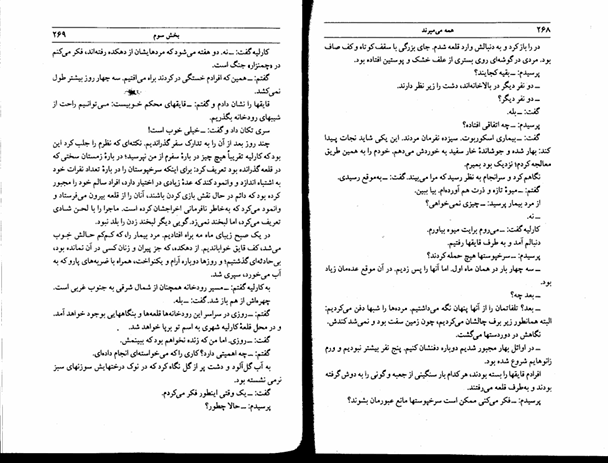 ۲۶۸ همه می‌میرند
در را باز کرد و به دنبالش وارد قلعه شدم. جای بزرگی با سقف کوتاه و کف صاف
بود. مردی در گوشه‌ای روی بستری از علف خشک و پوستین افتاده بود.
پرسیدم: ــ بقیه کجایند؟
ــ دو نفر دیگر در بالاخانه‌اند، دشت را زیر نظر دارند.
ــ دو نفر دیگر؟
گفت: ــ بله.
پرسیدم: ــ چه اتفاقی افتاده؟
گفت: ــ بیماری اسکوربوت. سیزده نفرمان مردند. این یکی شاید نجات پیدا
کند: بهار شده و جوشاندهٔ خار سفید به خوردش می‌دهم. خودم را به همین طریق
معالجه کردم؛ نزدیک بود بمیرم.
نگاهم کرد و سرانجام به نظر رسید که مرا می‌بیند. گفت: ــ به‌موقع رسیدی.
گفتم: ــ میوهٔ تازه و ذرت هم آورده‌ام. بیا ببین.
از مرد بیمار پرسید: ــ چیزی نمی‌خواهی؟
ــ نه.
کارلیه گفت: ــ می‌روم برایت میوه بیاورم.
دنبالم آمد و به طرف قایقها رفتیم.
ــ سرخپوستها هیچ حمله کردند؟
ــ سه چهار بار در همان ماه اول. اما آنها را پس زدیم. در آن موقع عده‌مان زیاد
بود.
ــ بعد چه؟
ــ بعد؟ تلفاتمان را از آنها پنهان نگه می‌داشتیم. مرده‌ها را شبها دفن می‌کردیم؛
البته همانطور زیر برف چالشان می‌کردیم، چون زمین سفت بود و نمی‌شد کندش.
نگاهش در دوردستها می‌گشت.
ــ در اوائل بهار مجبور شدیم دوباره دفنشان کنیم. پنج نفر بیشتر نبودیم و ورم
زانوهایم شروع شده بود.
افرادم قایقها را بسته بودند، هر کدام بار سنگینی از جعبه و گونی را به دوش گرفته
بودند و به‌طرف قلعه می‌رفتند.
پرسیدم: ــ فکر می‌کنی ممکن است سرخپوستها مانع عبورمان بشوند؟
بخش سوم ۲۶۹
کارلیه گفت: ــ نه. دو هفته می‌شود که مردهایشان از دهکده رفته‌اند، فکر می‌کنم
در چمنزار، جنگ است.
گفتم: ــ همین که افرادم خستگی در کردند براه می‌افتیم. سه چهار روز بیشتر طول
نمی‌کشد.
قایقها را نشان دادم و گفتم: ــ قایقهای محکم خوبیست: می‌توانیم راحت از
شیبهای رودخانه بگذریم.
سری تکان داد و گفت: ــ خیلی خوب است!
چند روز بعد از آن را به تدارک سفر گذراندیم. نکته‌ای که نظرم را جلب کرد این
بود که کارلیه تقریباً هیچ چیز در بارهٔ سفرم از من نپرسید؛ در بارهٔ زمستان سختی که
در قلعه گذرانده بود تعریف کرد: برای اینکه سرخپوستان را در بارهٔ تعداد نفرات خود
به اشتباه اندازد و وانمود کند که عدهٔ زیادی در اختیار دارد، افراد سالم خود را مجبور
کرده بود که دائم در حال نقش بازی کردن باشند، آنان را از قلعه بیرون می‌فرستاد و
وانمود می‌کرد که به‌خاطر نافرمانی اخراجشان کرده است. ماجرا را با لحن شادی
تعریف می‌کرد، اما لبخند نمی‌زد. گویی دیگر لبخند زدن را بلد نبود.
در یک صبح زیبای ماه مه براه افتادیم. مرد بیمار را، که کم‌کم حالش خوب
می‌شد، کف قایق خواباندیم. از دهکده، که جز پیران و زنان کسی در آن نمانده بود،
بی‌حادثه‌ای گذشتیم؛ و روزها دوباره آرام و یکنواخت، همراه با ضربه‌های پارو که به
آب می‌خورد، سپری شد.
به کارلیه گفتم: ــ مسیر رودخانه همچنان از شمال شرقی به جنوب غربی است.
چهره‌اش از هم باز شد. گفت: ــ بله.
گفتم: ــ روزی در سراسر این رودخانه‌ها قلعه‌ها و بنگاههایی بوجود خواهد آمد.
و در محل قلعهٔ کارلیه شهری به اسم تو برپا خواهد شد.
گفت: ــ روزی. اما من که زنده نخواهم بود که ببینمش.
گفتم: ــ چه اهمیتی دارد؟ کاری را که می‌خواسته‌ای انجام داده‌ای.
به آب گل‌آلود و دشت پر از گل نگاه کرد که در نوک درختهایش سوزنهای سبز
نرمی نشسته بود.
گفت: ــ یک وقتی اینطور فکر می‌کردم.
پرسیدم: ــ حالا چطور؟